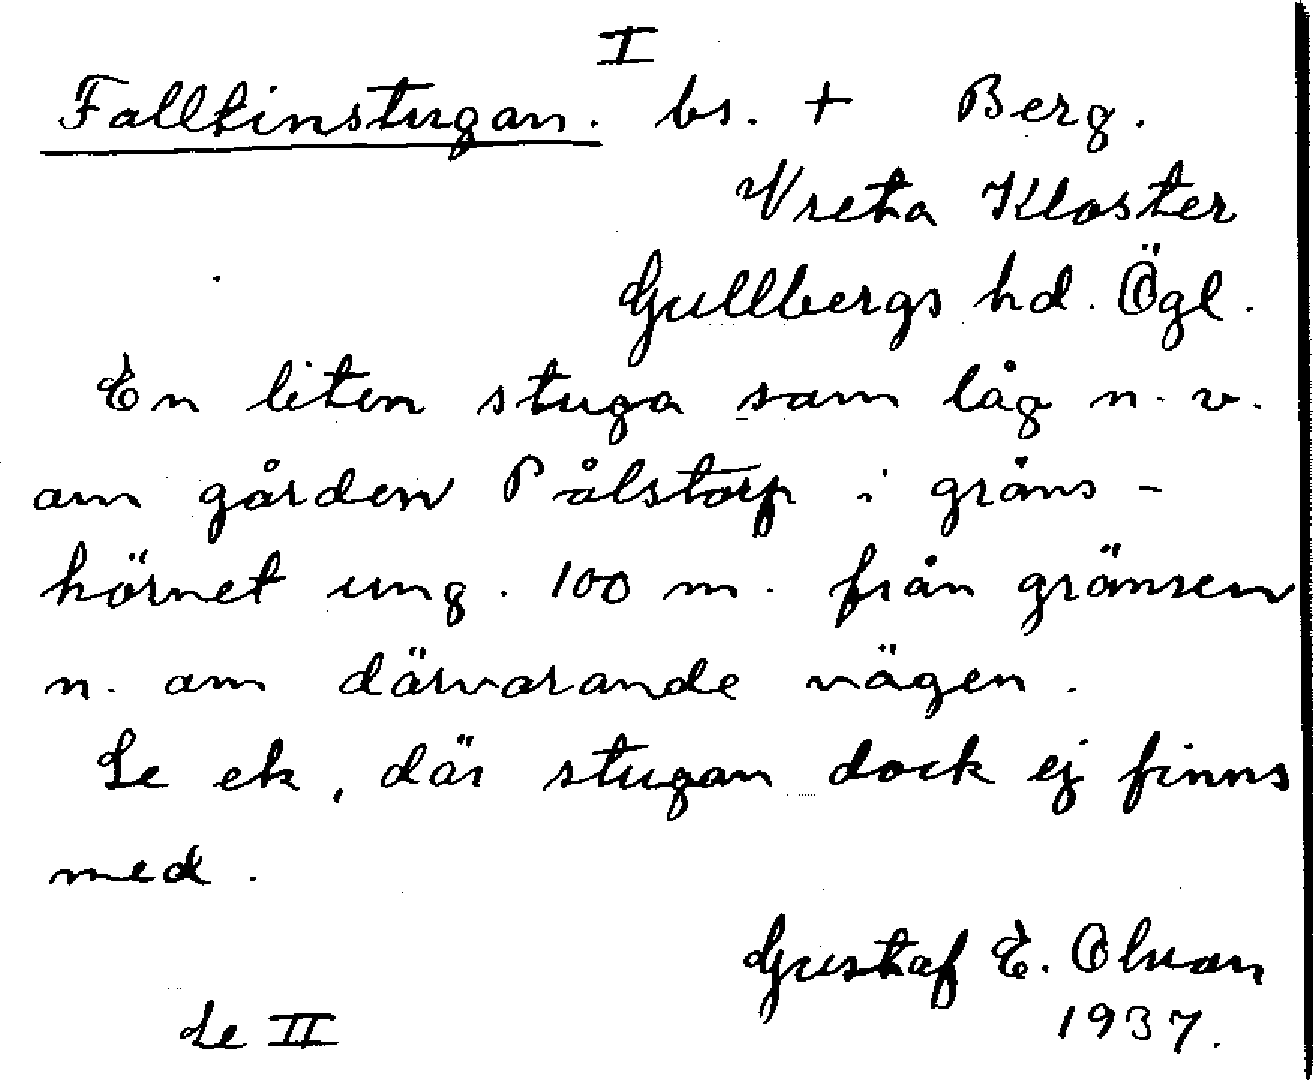 I
Fallkinstugan. bs. + Berg.
Vreta Kloster
Gullbergs hd. Ögl.
En liten stuga som låg n. v.
om gården Pålstorp i gräns-
hörnet ung. 100 m. från gränsen
n. om därvarande vägen.
Se ek, där stugan dock ej finns
med.
Gustaf E. Olson
1937.
Se II